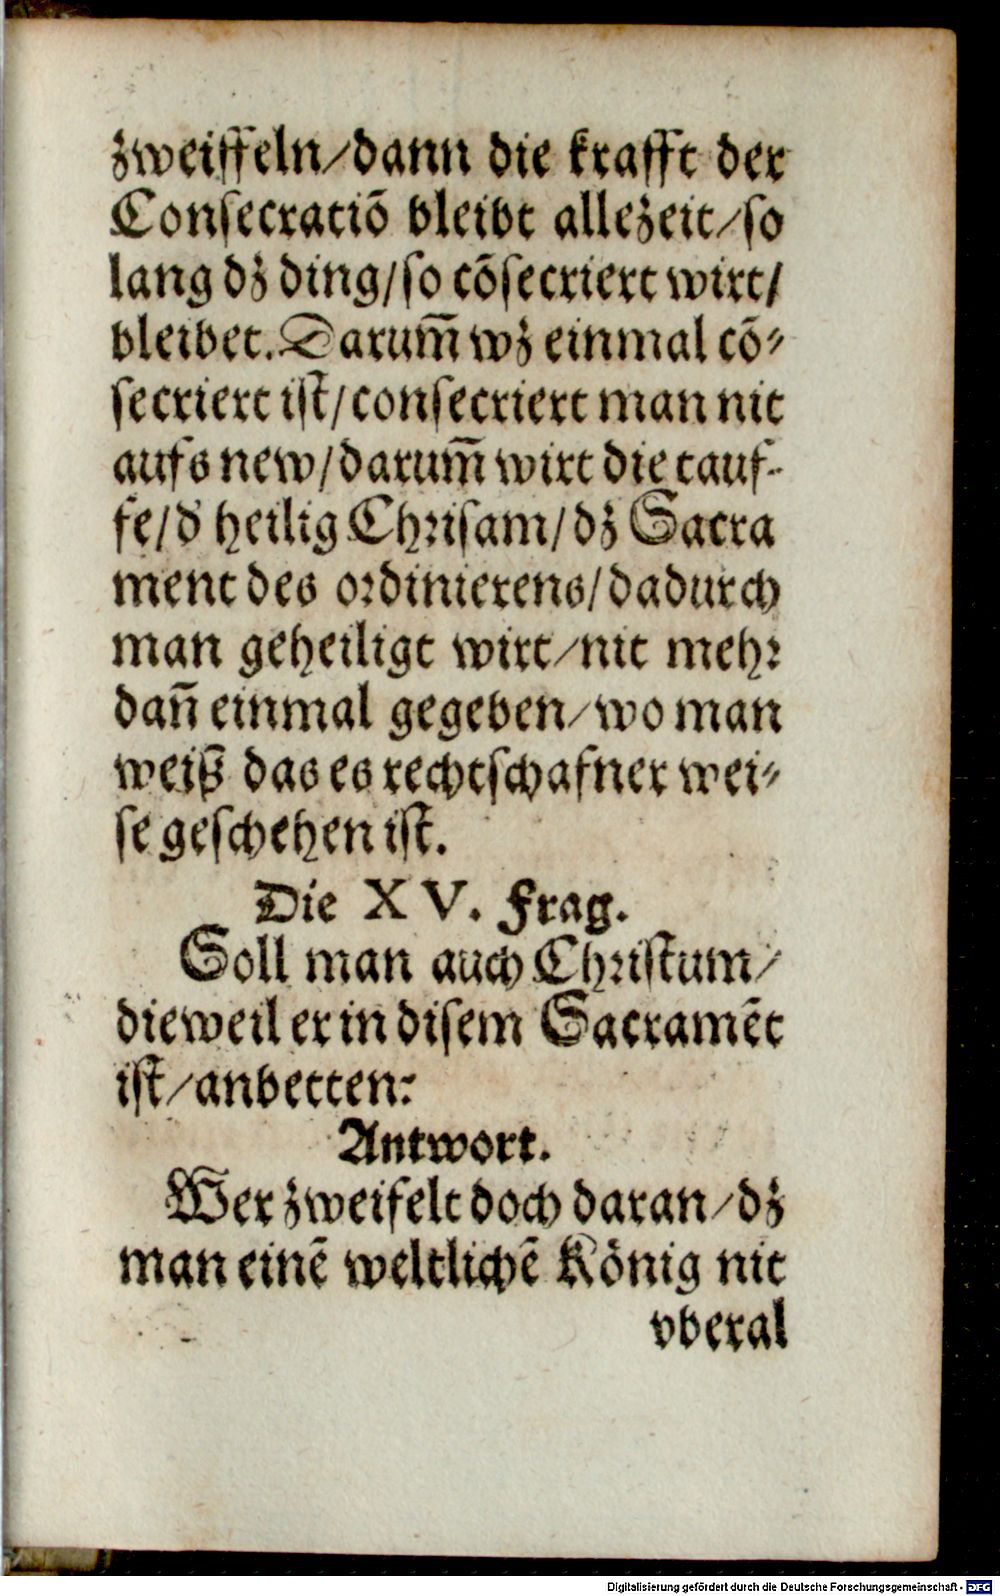 zweiffeln/dann die krafft der
Consecratiõ bleibt allezeit/so
lang dz ding/so cõsecriert wirt/
bleibet. Darum̃ wz einmal cõ⸗
secriert ist/consecriert man nit
aufs new/darum̃ wirt die tauf-
fe/d' heilig Chrisam/dz Sacra
ment des ordinierens/dadurch
man geheiligt wirt/nit mehr
dañ einmal gegeben/wo man
weiß das es rechtschafner wei⸗
se geschehen ist.
Die XV. Frag.
Soll man auch Christum/
dieweil er in disem Sacramẽt
ist/anbetten:
Antwort.
Wer zweifelt doch daran/dz
man einẽ weltlichẽ König nit
vberal
Digitalisierung gefördert durch die Deutsche Forschungsgemeinschaft - DFG